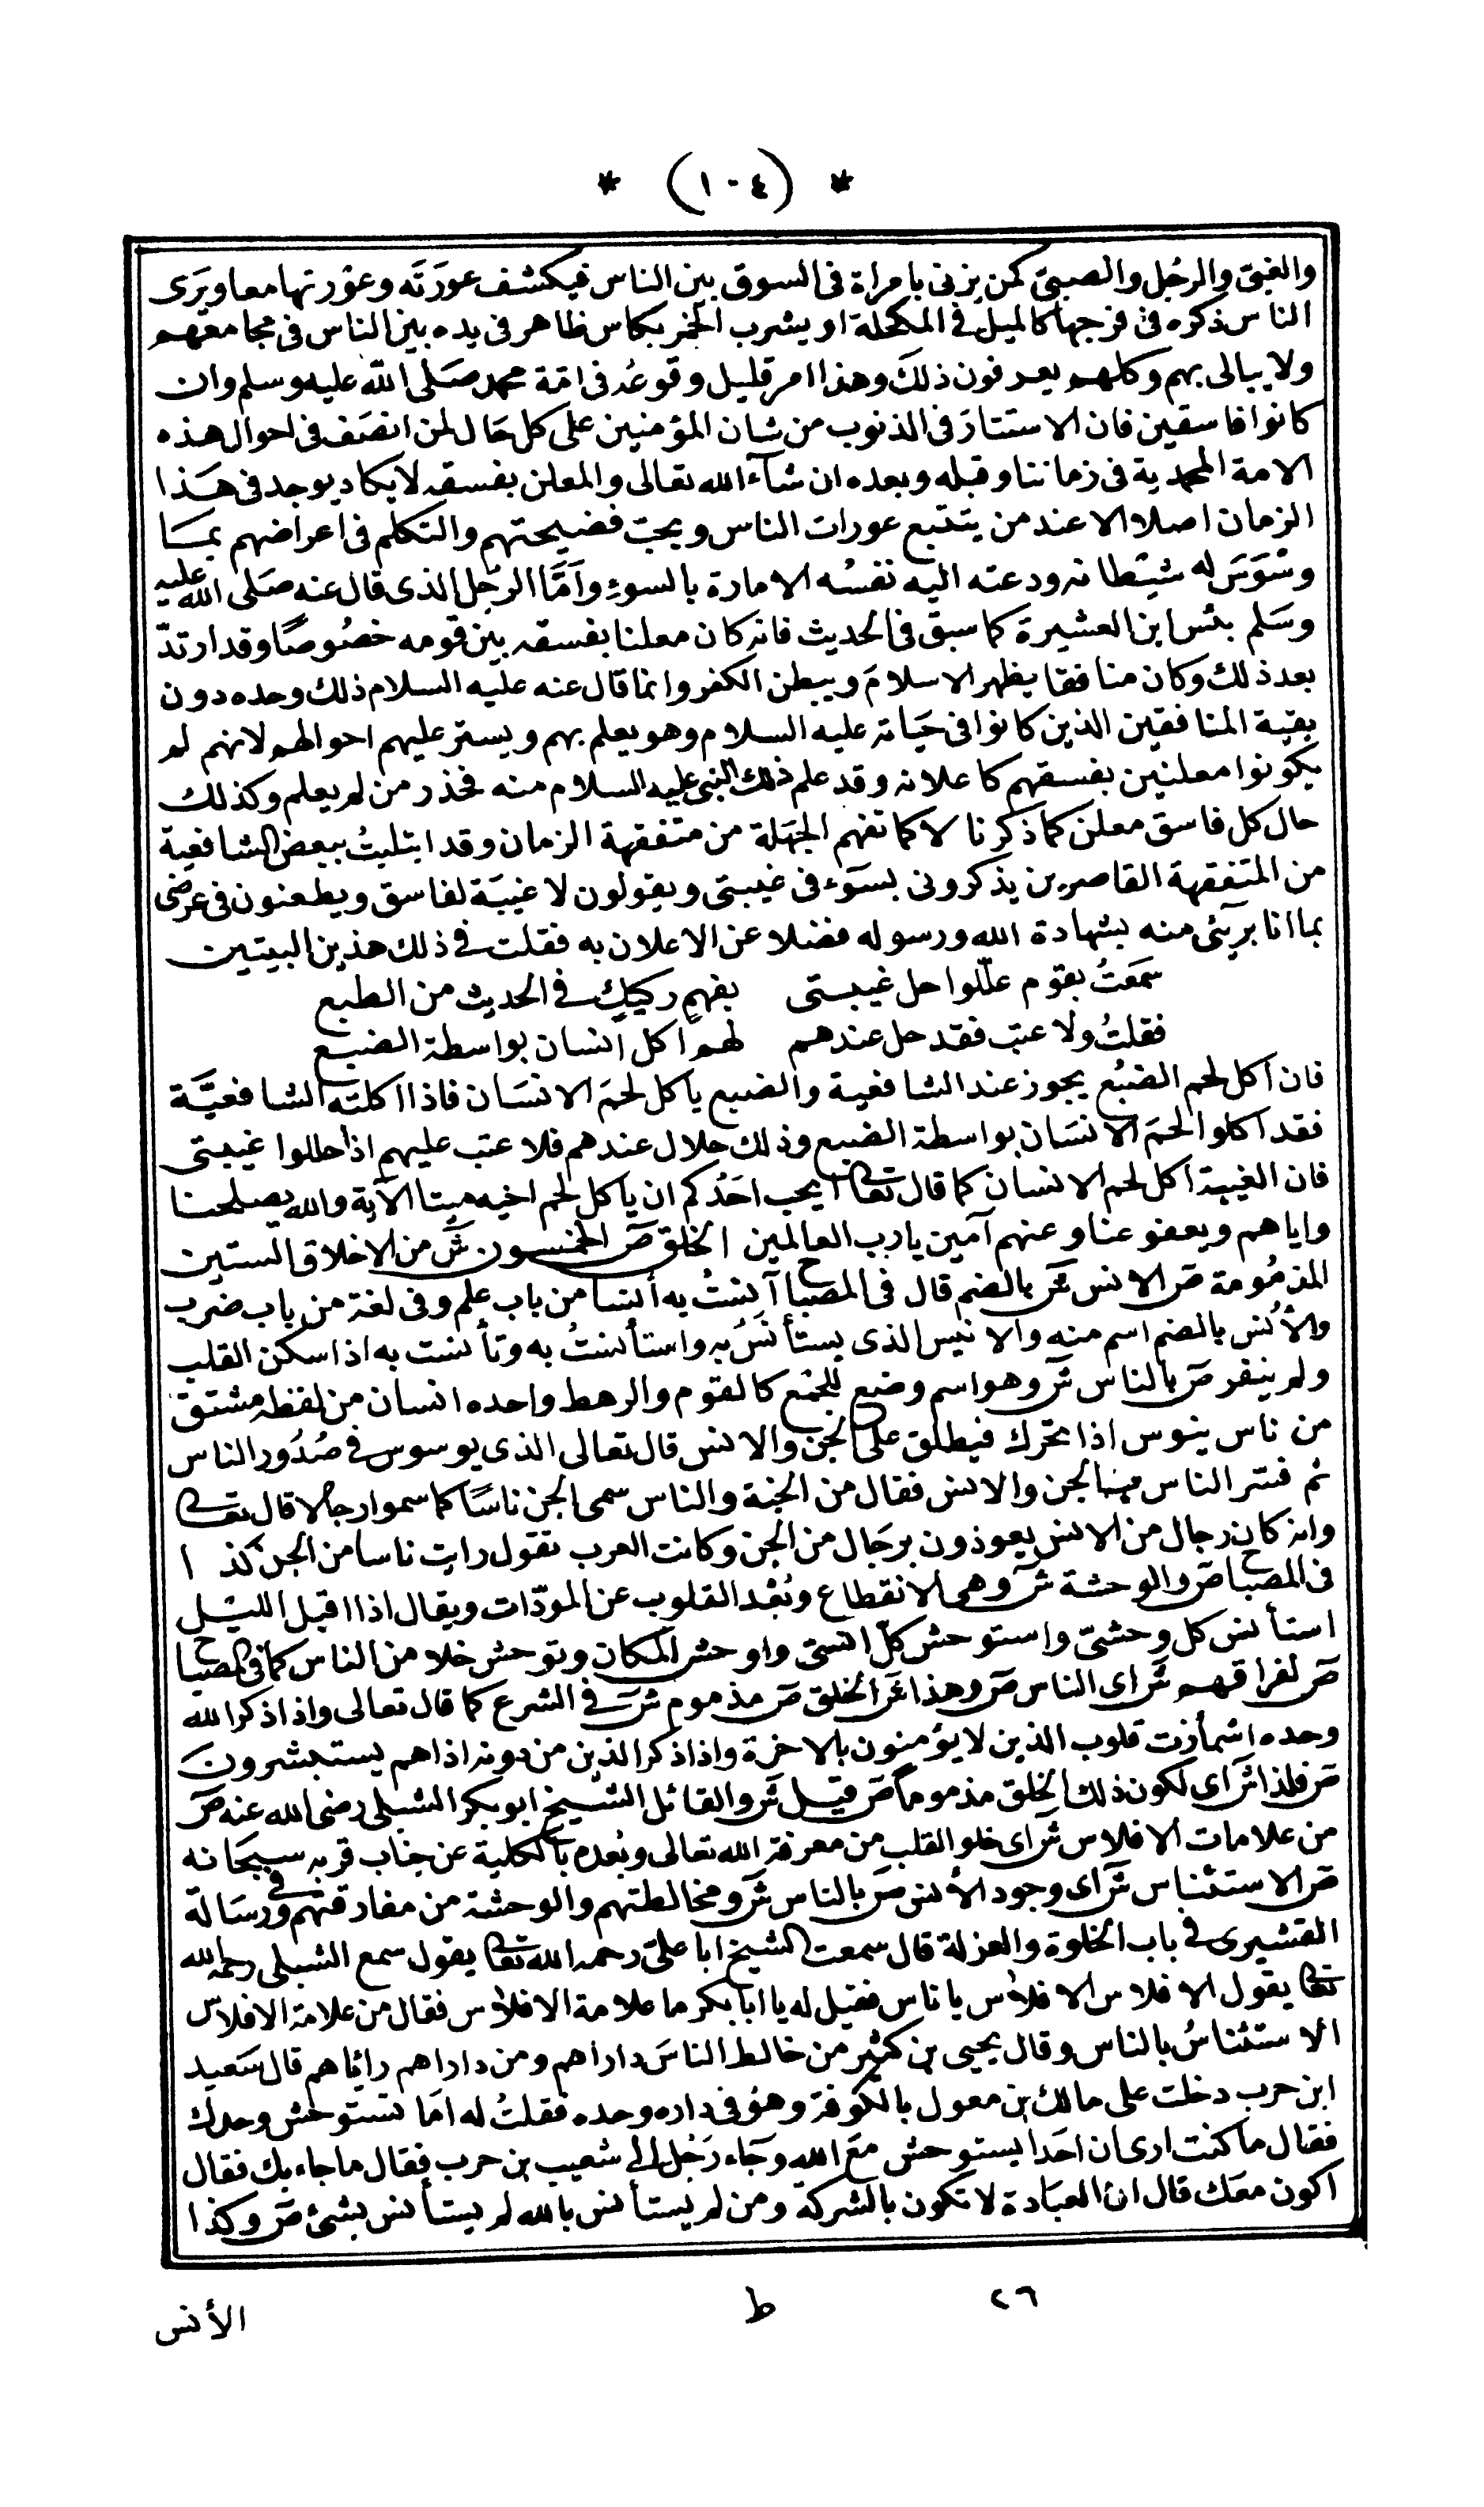 * (١٠٤) *
والغبى والرجُل والصبىّ كمن يزنى بامراة فى السوق بين الناس فيكشف عورَتَه وعورتها معا ويَرَى
الناس ذكره فى فرجها كالميل فى المكحلة او يشرب الخمر بكاس ظاهر فى يده بين الناس فى مجامعهم
ولا يبالى بهم وكلهم يعرفون ذلك وهذا امر قليل وقوعُه فى امّة محمد صَلى الله عليه وسلم وان
كانوا فاسقين فان الاستتارَ فى الذنوب من شان المؤمنين على كل حَال لمن انصَف فى احوال هذه
الامة المحمدية فى زماننا وقبله وبعده ان شآء الله تعالى والمعلن بفسقه لا يكاد يوجد فى هَذا
الزمان اصلا الا عند من يتتبع عورات الناس ويحب فضيحتهم والتكلم فى اعراضهم بمَا
وسْوَسَ له شيْطانه ودعته اليه نفسُه الامارة بالسوءِ وَامَّا الرجل الذى قال عنه صَلى الله عليه
وسَلم بئس ابن العشيرة كما سبق فى الحديث فانه كان معلنا بفسقه بين قومه خصُوصًا وقد ارتدّ
بعد ذلك وكان منافقا يظهر الاسلامَ ويبطن الكفر وانما قال عنه عليه السلام ذلك وحده دون
بقية المنافقين الذين كانوا فى حَياته عليه السلام وهو يعلم بهم ويستر عليهم احوالهم لانهم لم
يكونوا معلنين بفسقهم كاعلانه وقد علم ذلك النبى عليه السلام منه فحذر من لم يعلم وكذلك
حال كل فاسق معلن كما ذكرنا لا كما تفهم الجهَلة من متفقهة الزمان وقد ابتليتُ ببعض الشافعية
من المتفقهة القاصرين يذكرونى بسَوء فى غيبتى ويقولون لا غيبَة لفاسق ويطعنون فى عرضى
بما انا برىئ منه بشهادة الله ورسوله فضلا عن الاعلان به فقلت فى ذلك هذين البيتين
سَمَعتُ بقوم علّلوا حل غيبتى بفهم ركيك فى الحديث من الطبع
فقلتُ ولا عتب فقد حل عندهم لهم اكل انسان بواسطة الضبع
فان اكل لحم الضبُع يجوز عند الشافعية والضبع ياكل لحمَ الانسَان فاذا اكلته الشافعيَّة
فقد اكلوا لحمَ الانسَان بواسطة الضبع وذلك حلال عندهم فلا عتب عليهم اذا حللوا غيبتى
فان الغيبة اكل لحم الانسان كما قال تعالى ايحب احَدُكم ان ياكل لحم اخيه ميتا الآية والله يصلحنا
واياهم ويعفو عنا وعنهم آمين يا رب العالمين الخلق صَ الخمسون شَ من الاخلاق الستين
المذمُومة صَ الانس شَ بالضم قال فى المصباح آنستُ به أنسا من باب علم وفى لغة من باب ضرب
والأُنس بالضم اسم منه والانيس الذى يستأنسُ به واستأنستُ به وتأنست به اذا سكن القلب
ولم ينفر صَ بالناس شَ وهو اسم وضع للجمْع كالقوم والرهط واحده انسان من لفظه مشتق
من ناس ينوس اذا تحرك فيطلق على الجن والانس قال تعالى الذى يوسوس فى صُدُور الناس
ثم فسّر الناس بالجن والانس فقال من الجنة والناس سمى الجن ناسًا كما سموا رجالا قال تعالى
وانه كان رجال من الانس يعوذون برجَال من الجن وكانت العرب تقول رايت ناسا من الجن كذا
فى المصباح صَ والوحشة شَ وهى الانقطاع وبُعْد القلوب عن المودّات ويقال اذا اقبل الليْل
استأنس كل وحشىّ واستوحش كلّ انسىّ واوحش المكان وتوحش خلا من الناس كما فى المصباح
صَ لفراقهم شَ اى الناس صَ وهذا شَ الخلق صَ مذموم شَ فى الشرع كما قال تعالى واذا ذكر الله
وحده اشمأزت قلوب الذين لا يؤمنون بالاخرة واذا ذكر الذين من دونه اذا هم يستبشرون
صَ فلذا شَ اى لكون ذلك الخلق مذموما صَ قيل شَ والقائل الشيخ ابو بكر الشبلى رضى الله عنه صَ
من علامات الافلاس شَ اى خلو القلب من معرفة الله تعالى وبُعده بالكلية عن جناب قربه سبحَانه
صَ الاستئناس شَ اى وجود الأنس صَ بالناس شَ ومخالطتهم والوحشة من مفارقتهم وفى رسَالة
القشيرى فى باب الخلوة والعزلة قال سمعت الشيخ ابا علىّ رحمه الله تعالى يقول سمع الشبلى رحمه الله
تعالى يقول الافلاس الافلاس يا ناس فقيل له يا ابا بكر ما علامة الافلاس فقال من علامة الافلاس
الاستئناسُ بالناس وقال يحيى بن كثير من خالط الناسَ داراهم ومن داراهم راياهم قال سَعيد
ابن حرب دخلت على مالك بن معول بالكوفة وهوُ فى داره وحده فقلتُ له امَا تستوحش وحدك
فقال ما كنت ارى ان احَدا يستوحش معَ الله وجَاء رَجُل الى شعيب بن حرب فقال ما جاء بك فقال
اكون معَك قال انّ العبَادة لا تكون بالشركة ومن لم يستأنس بالله لم يستأنس بشئ صَ وكذا
٢٦ ط الأنس